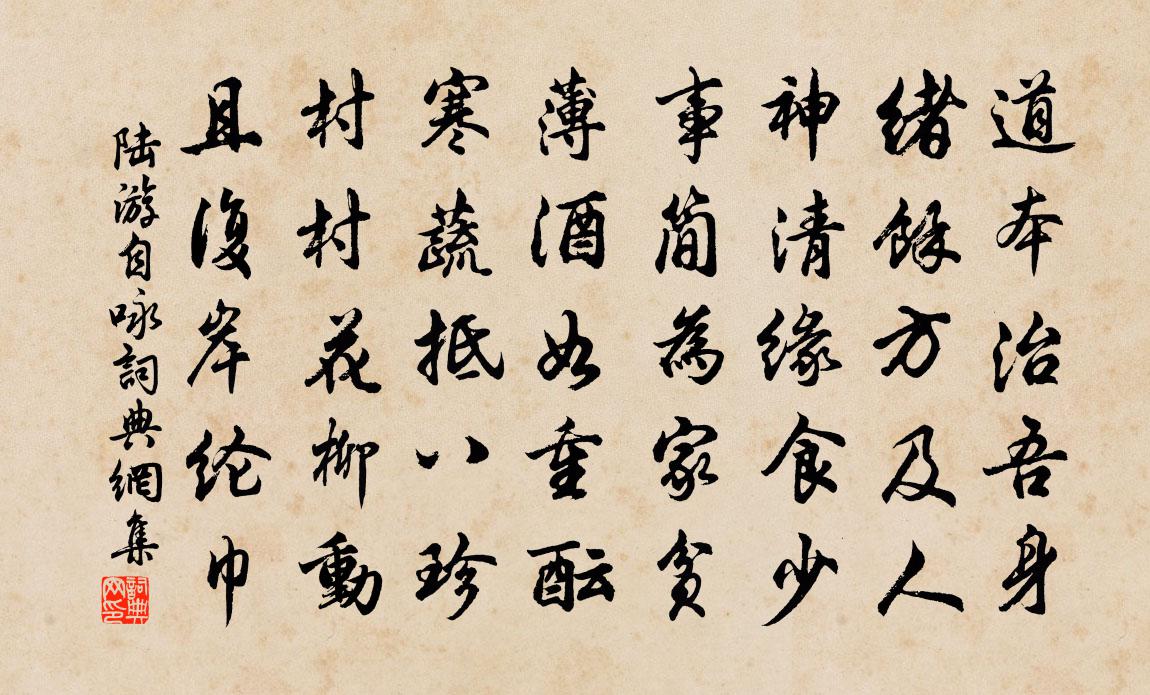 道本治吾身
緒餘方及人
神清緣食少
事簡為家貧
薄酒如重酝
寒蔬抵八珍
村村花柳動
且復岸纶巾
陆游自咏詞典網集
詞典网印